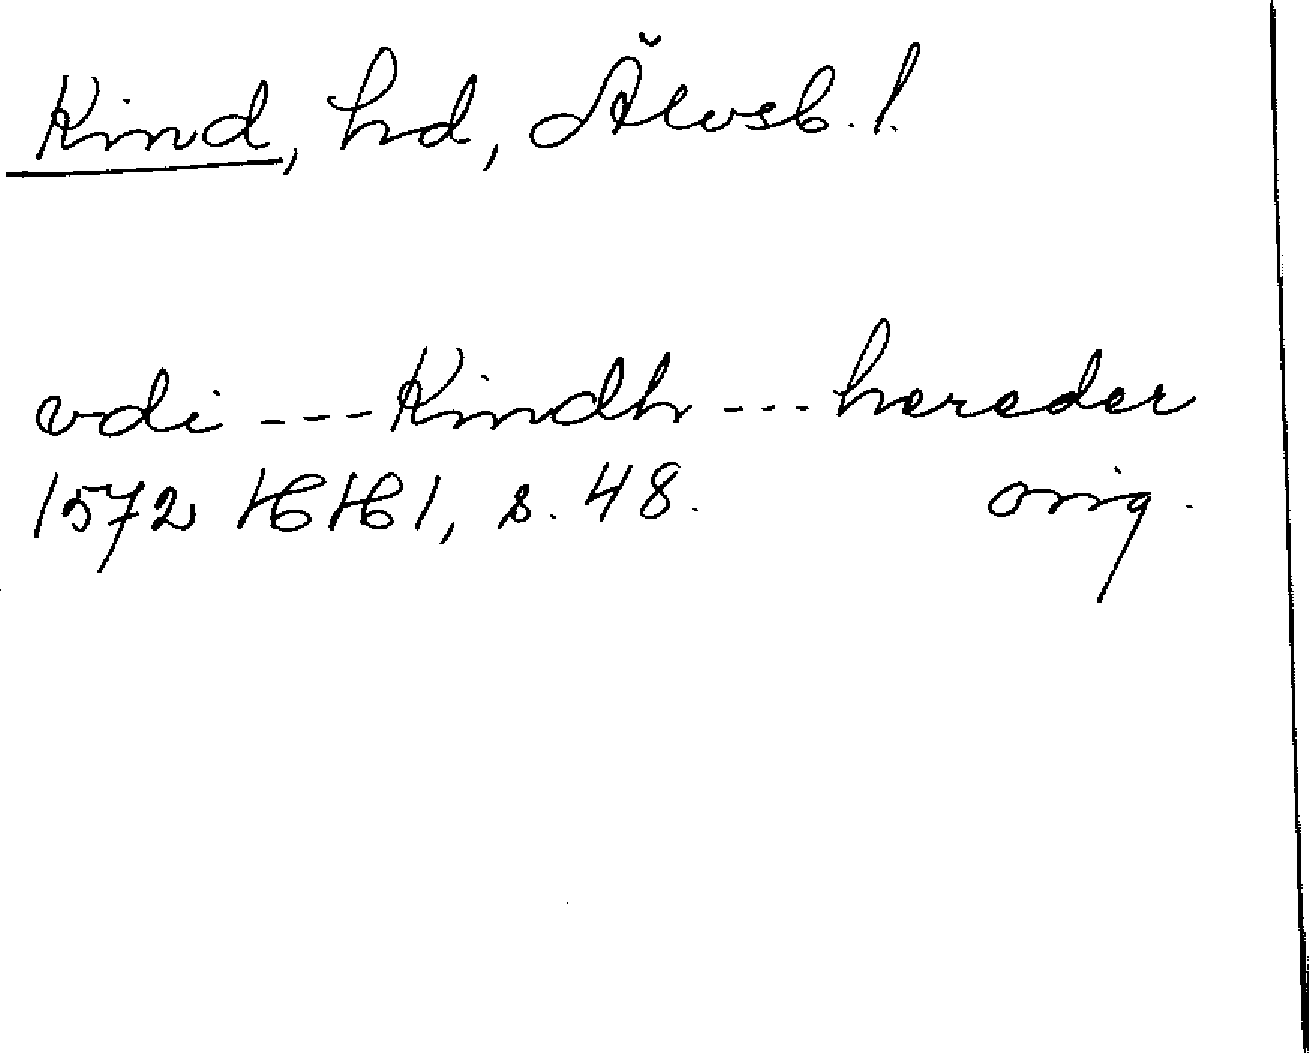 Kind, hd, Älvsb. l.
vdi --- Kindh --- hereder
1572 HH 1, s. 48. orig.